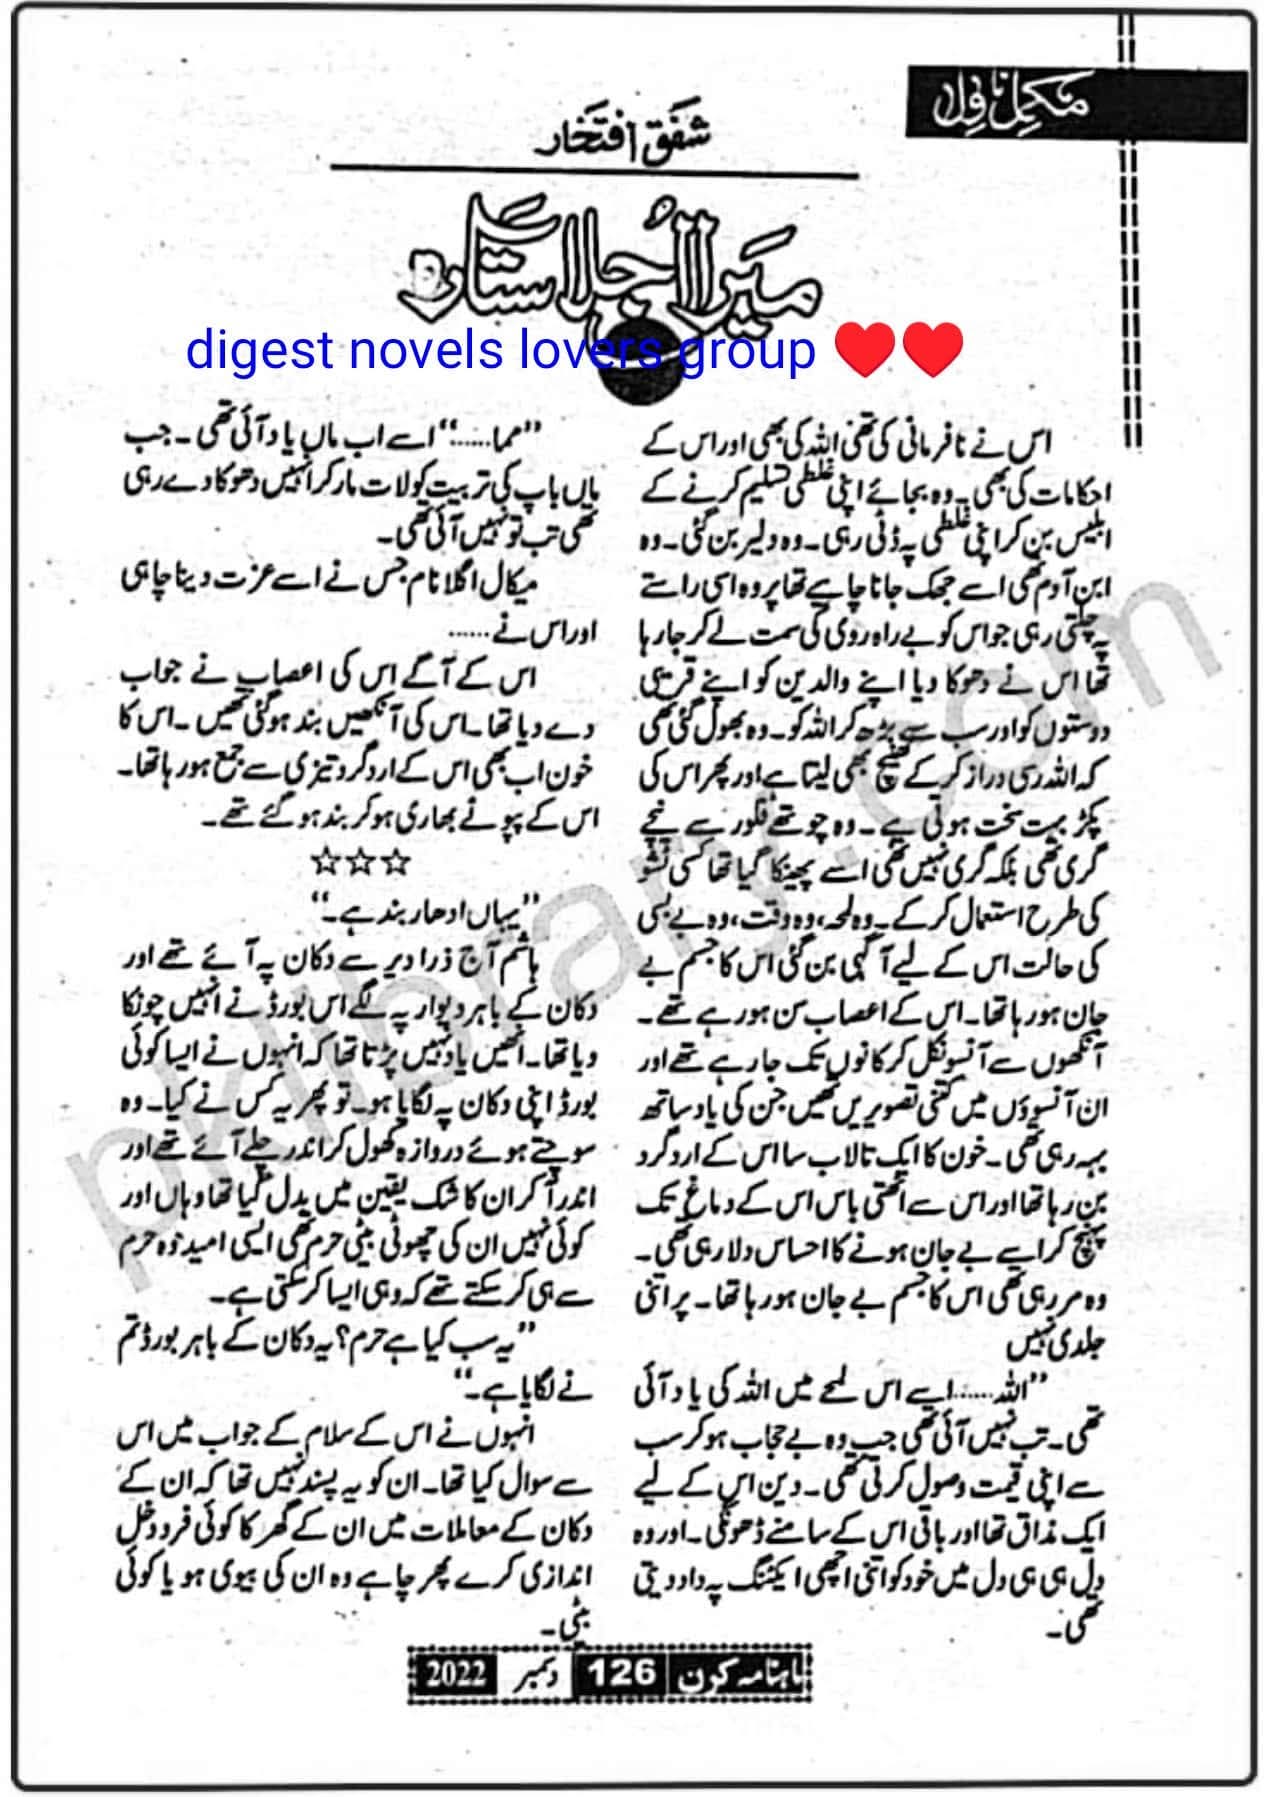 مکمل ناول
شفق افتخار
میرا اُجلا ستارہ
digest novels lovers group ❤️❤️
اس نے نافرمانی کی تھی اللہ کی بھی اور اس کے
احکامات کی بھی۔ وہ بجائے اپنی غلطی تسلیم کرنے کے
ابلیس بن کر اپنی غلطی پہ ڈٹی رہی۔ وہ دلیر بن گئی۔ وہ
ابن آدم تھی اسے جھک جانا چاہیے تھا پر وہ اسی راستے
پہ چلتی رہی جو اس کو بے راہ روی کی سمت لے کر جا رہا
تھا اس نے دھوکا دیا اپنے والدین کو اپنے قریبی
دوستوں کو اور سب سے بڑھ کر اللہ کو۔ وہ بھول گئی تھی
کہ اللہ رسی دراز کر کے کھینچ بھی لیتا ہے اور پھر اس کی
پکڑ بہت سخت ہوتی ہے۔ وہ چوتھے فلور سے نیچے
گری تھی بلکہ گری نہیں تھی اسے پھینکا گیا تھا کسی ٹشو
کی طرح استعمال کر کے۔ وہ لمحہ، وہ وقت، وہ بے بسی
کی حالت اس کے لیے آگہی بن گئی اس کا جسم بے
جان ہو رہا تھا۔ اس کے اعصاب سن ہو رہے تھے۔
آنکھوں سے آنسو نکل کر کانوں تک جا رہے تھے اور
ان آنسوؤں میں کتنی تصویریں تھیں جن کی یاد ساتھ
بہہ رہی تھی۔ خون کا ایک تالاب سا اس کے اردگرد
بن رہا تھا اور اس سے اٹھتی باس اس کے دماغ تک
پہنچ کر اسے بے جان ہونے کا احساس دلا رہی تھی۔
وہ مر رہی تھی اس کا جسم بے جان ہو رہا تھا۔ پر اتنی
جلدی نہیں
”اللہ……اسے اس لمحے میں اللہ کی یاد آئی
تھی۔ تب نہیں آئی تھی جب وہ بے حجاب ہو کر سب
سے اپنی قیمت وصول کرتی تھی۔ دین اس کے لیے
ایک مذاق تھا اور باقی اس کے سامنے ڈھونگی۔ اور وہ
دل ہی ہی دل میں خود کو اتنی اچھی ایکٹنگ پہ داد دیتی
تھی۔
”مما……“ اسے اب ماں یاد آئی تھی۔ جب
ماں باپ کی تربیت کو لات مار کر انہیں دھوکا دے رہی
تھی تب تو نہیں آئی تھی۔
میکال اگلا نام جس نے اسے عزت دینا چاہی
اور اس نے……
اس کے آگے اس کی اعصاب نے جواب
دے دیا تھا۔ اس کی آنکھیں بند ہو گئی تھیں۔ اس کا
خون اب بھی اس کے اردگرد تیزی سے جمع ہو رہا تھا۔
اس کے پپوٹے بھاری ہو کر بند ہو گئے تھے۔
☆☆☆
”یہاں ادھار بند ہے۔“
ہاشم آج ذرا دیر سے دکان پہ آئے تھے اور
دکان کے باہر دیوار پہ لگے اس بورڈ نے انہیں چونکا
دیا تھا۔ انھیں یاد نہیں پڑتا تھا کہ انہوں نے ایسا کوئی
بورڈ اپنی دکان پہ لگایا ہو۔ تو پھر یہ کس نے کیا۔ وہ
سوچتے ہوئے دروازہ کھول کر اندر چلے آئے تھے اور
اندر آ کر ان کا شک یقین میں بدل گیا تھا وہاں اور
کوئی نہیں ان کی چھوٹی بیٹی حرم تھی ایسی امید وہ حرم
سے ہی کر سکتے تھے کہ وہی ایسا کر سکتی ہے۔
”یہ سب کیا ہے حرم؟ یہ دکان کے باہر بورڈ تم
نے لگایا ہے۔“
انہوں نے اس کے سلام کے جواب میں اس
سے سوال کیا تھا۔ ان کو یہ پسند نہیں تھا کہ ان کے
دکان کے معاملات میں ان کے گھر کا کوئی فرد دخل
اندازی کرے پھر چاہے وہ ان کی بیوی ہو یا کوئی
بیٹی۔
ماہنامہ کرن 126 دسمبر 2022
pklibrary.com